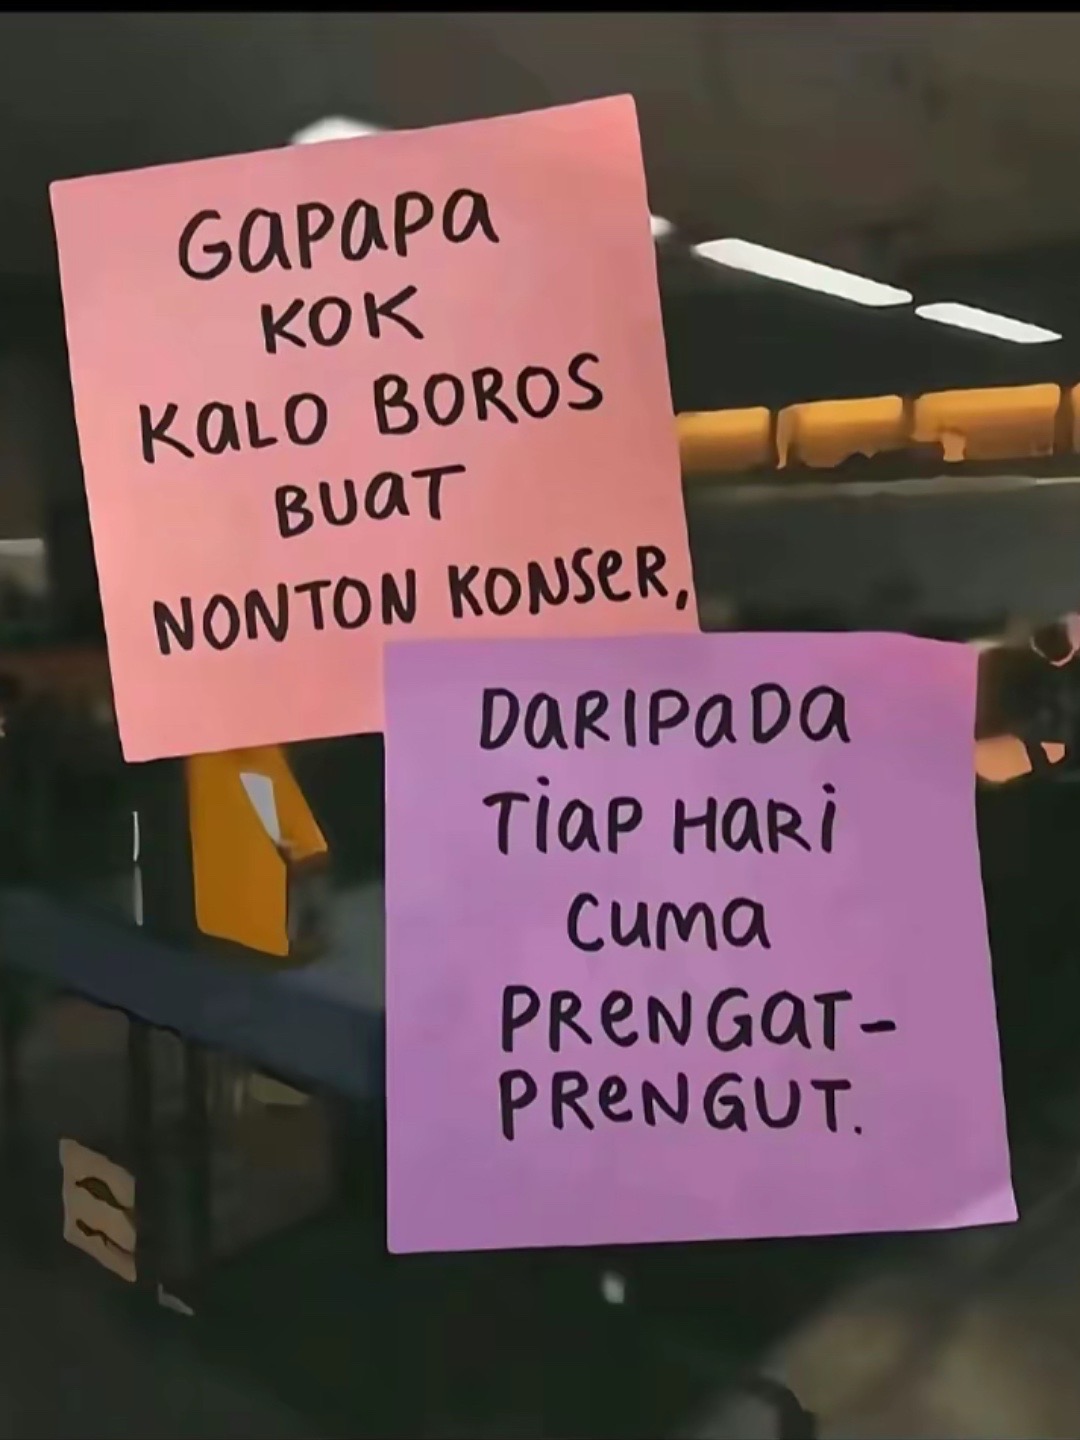 GaPaPa
KOK
KaLO BOROS
BUaT
NONTON KONSeR,
DaRIPaDa
TiaP HaRi
Cuma
PReNGaT-
PReNGUT.